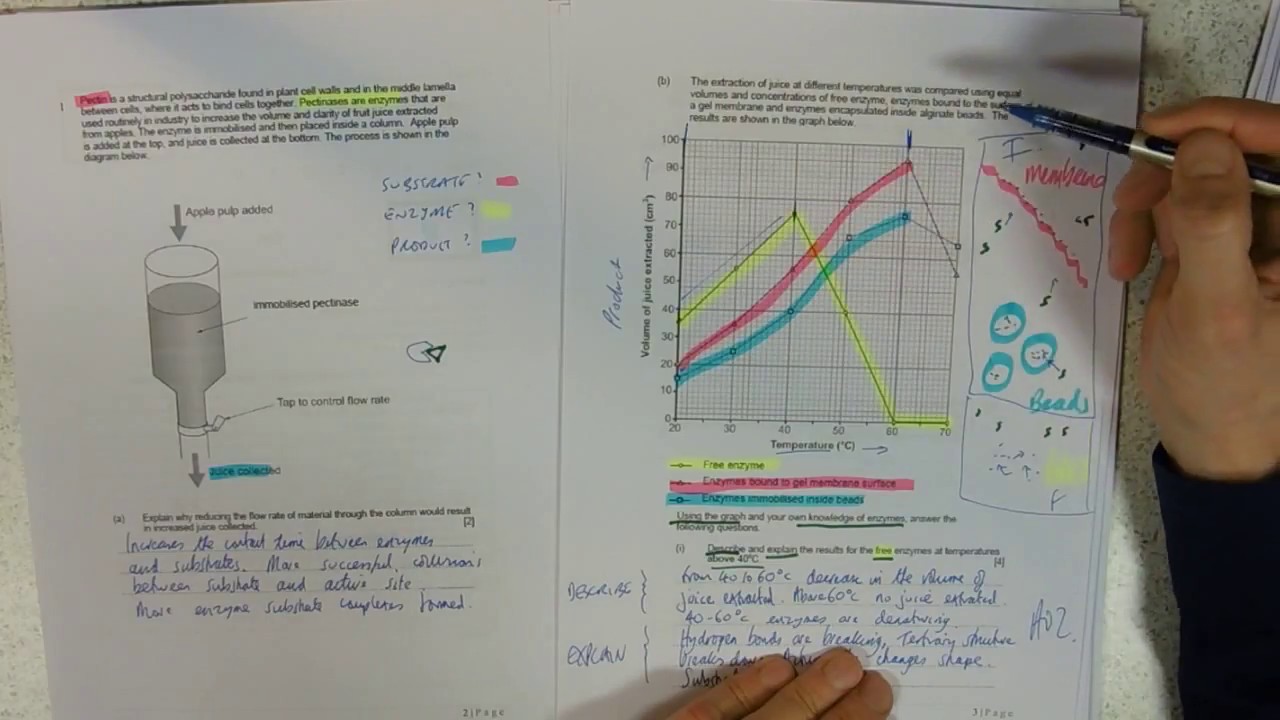 1 Pectin is a structural polysaccharide found in plant cell walls and in the middle lamella
between cells, where it acts to bind cells together. Pectinases are enzymes that are
used routinely in industry to increase the volume and clarity of fruit juice extracted
from apples. The enzyme is immobilised and then placed inside a column. Apple pulp
is added at the top, and juice is collected at the bottom. The process is shown in the
diagram below.
SUBSTRATE?
ENZYME?
PRODUCT?
Apple pulp added
immobilised pectinase
Tap to control flow rate
Juice collected
(a) Explain why reducing the flow rate of material through the column would result
in increased juice collected. [2]
Increases the contact time between enzymes
and substrates. More successful collisions
between substrate and active site.
More enzyme substrate complexes formed.
2 | Page
(b) The extraction of juice at different temperatures was compared using equal
volumes and concentrations of free enzyme, enzymes bound to the
a gel membrane and enzymes encapsulated inside alginate beads. The
results are shown in the graph below.
Product
Volume of juice extracted (cm³)
100
90
80
70
60
50
40
30
20
10
0
20 30 40 50 60 70
Temperature (°C)
Free enzyme
Enzymes bound to gel membrane surface
Enzymes immobilised inside beads
I
Membrane
Beads
F
Using the graph and your own knowledge of enzymes, answer the
following questions.
(i) Describe and explain the results for the free enzymes at temperatures
above 40°C [4]
DESCRIBE
from 40 to 60°C decrease in the volume of
juice extracted. Above 60°C no juice extracted.
40-60°C enzymes are denaturing.
EXPLAIN
Hydrogen bonds are breaking, Tertiary structure
breaks changes shape.
A02.
3 | Page